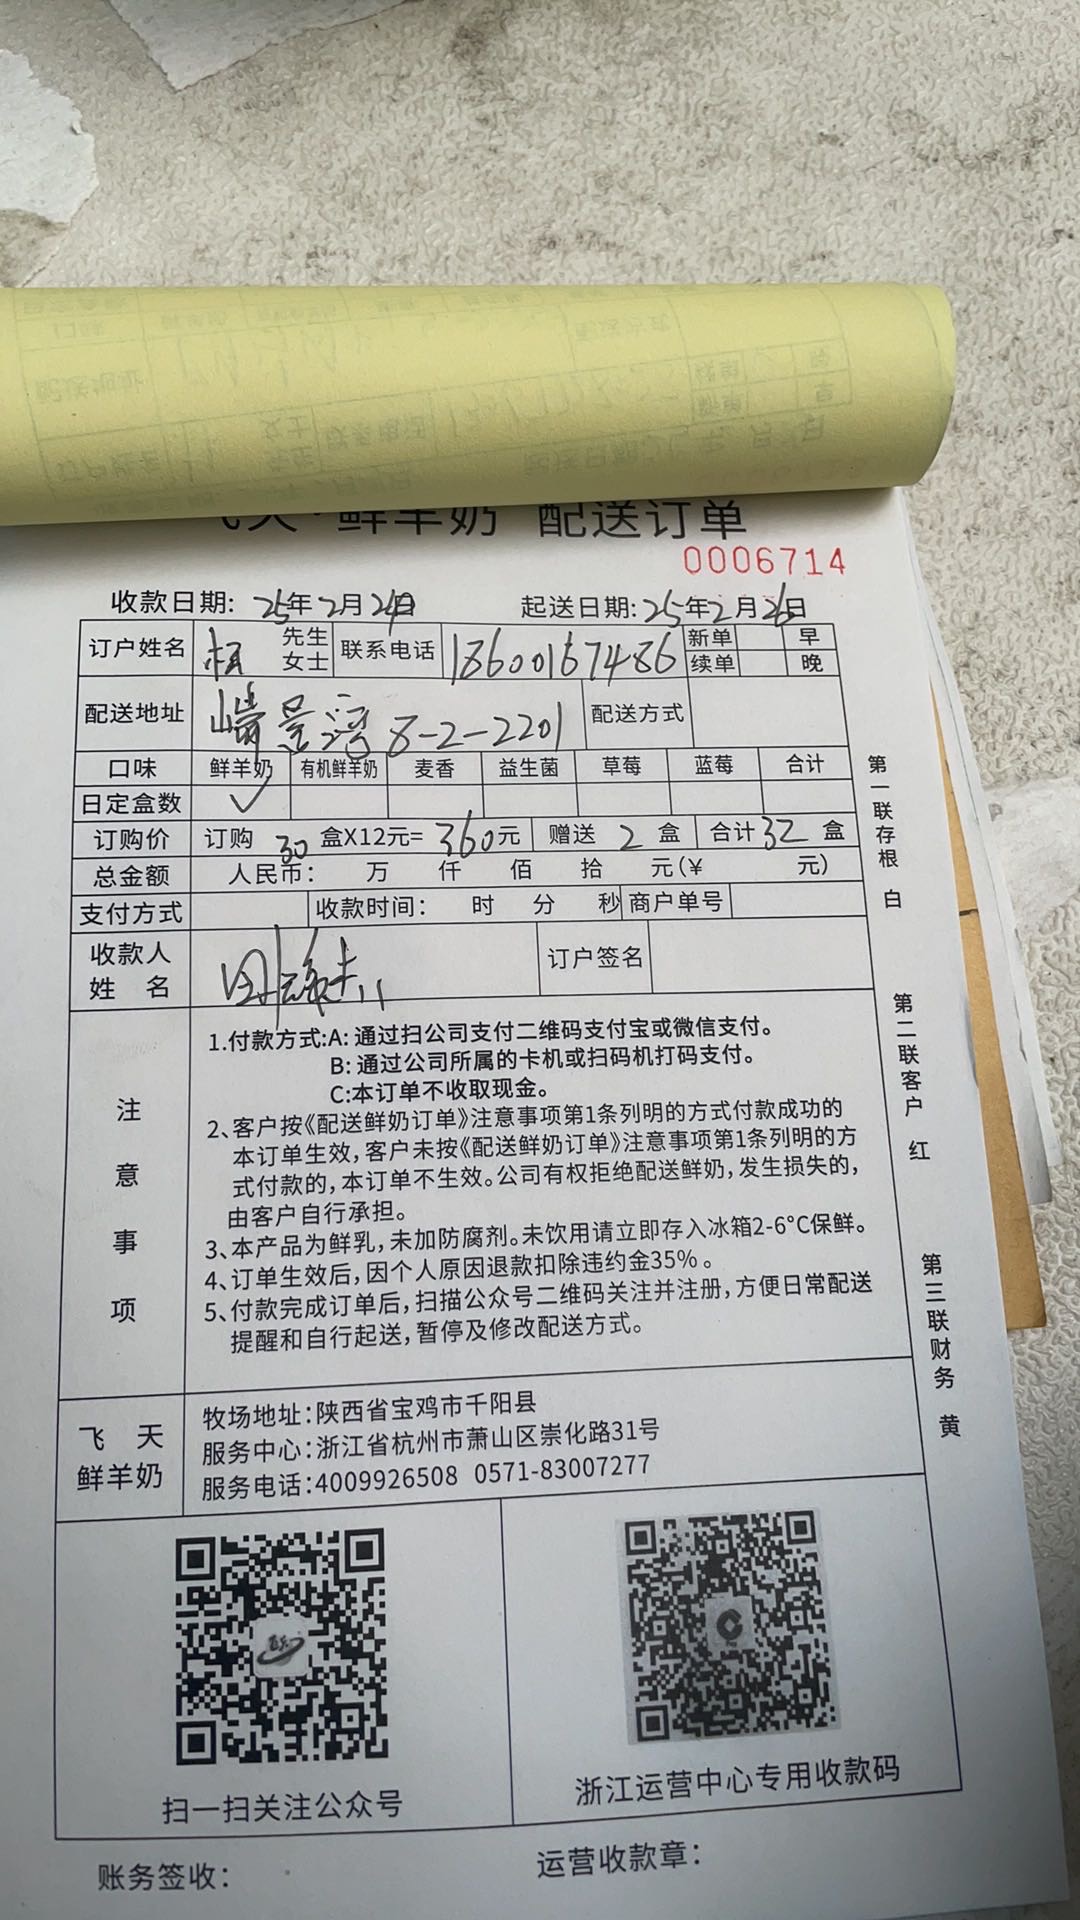 飞天·鲜羊奶 配送订单
0006714
收款日期: 25年2月24日 起送日期: 25年2月26日
订户姓名 先生 女士 联系电话 18600167486 新单 早 续单 晚
配送地址 景湾 8-2-2201 配送方式
口味 鲜羊奶 有机鲜羊奶 麦香 益生菌 草莓 蓝莓 合计
日定盒数 ✓
订购价 订购 30 盒X12元= 360元 赠送 2 盒 合计 32 盒
总金额 人民币: 万 仟 佰 拾 元(¥ 元)
支付方式 收款时间: 时 分 秒 商户单号
收款人姓名 订户签名
注意事项
1.付款方式:A: 通过扫公司支付二维码支付宝或微信支付。
B: 通过公司所属的卡机或扫码机打码支付。
C:本订单不收取现金。
2、客户按《配送鲜奶订单》注意事项第1条列明的方式付款成功的
本订单生效,客户未按《配送鲜奶订单》注意事项第1条列明的方
式付款的,本订单不生效。公司有权拒绝配送鲜奶,发生损失的,
由客户自行承担。
3、本产品为鲜乳,未加防腐剂。未饮用请立即存入冰箱2-6°C保鲜。
4、订单生效后,因个人原因退款扣除违约金35%。
5、付款完成订单后,扫描公众号二维码关注并注册,方便日常配送
提醒和自行起送,暂停及修改配送方式。
第一联存根 白
第二联客户 红
第三联财务 黄
飞天
鲜羊奶
牧场地址:陕西省宝鸡市千阳县
服务中心:浙江省杭州市萧山区崇化路31号
服务电话:4009926508 0571-83007277
扫一扫关注公众号
浙江运营中心专用收款码
账务签收:
运营收款章: